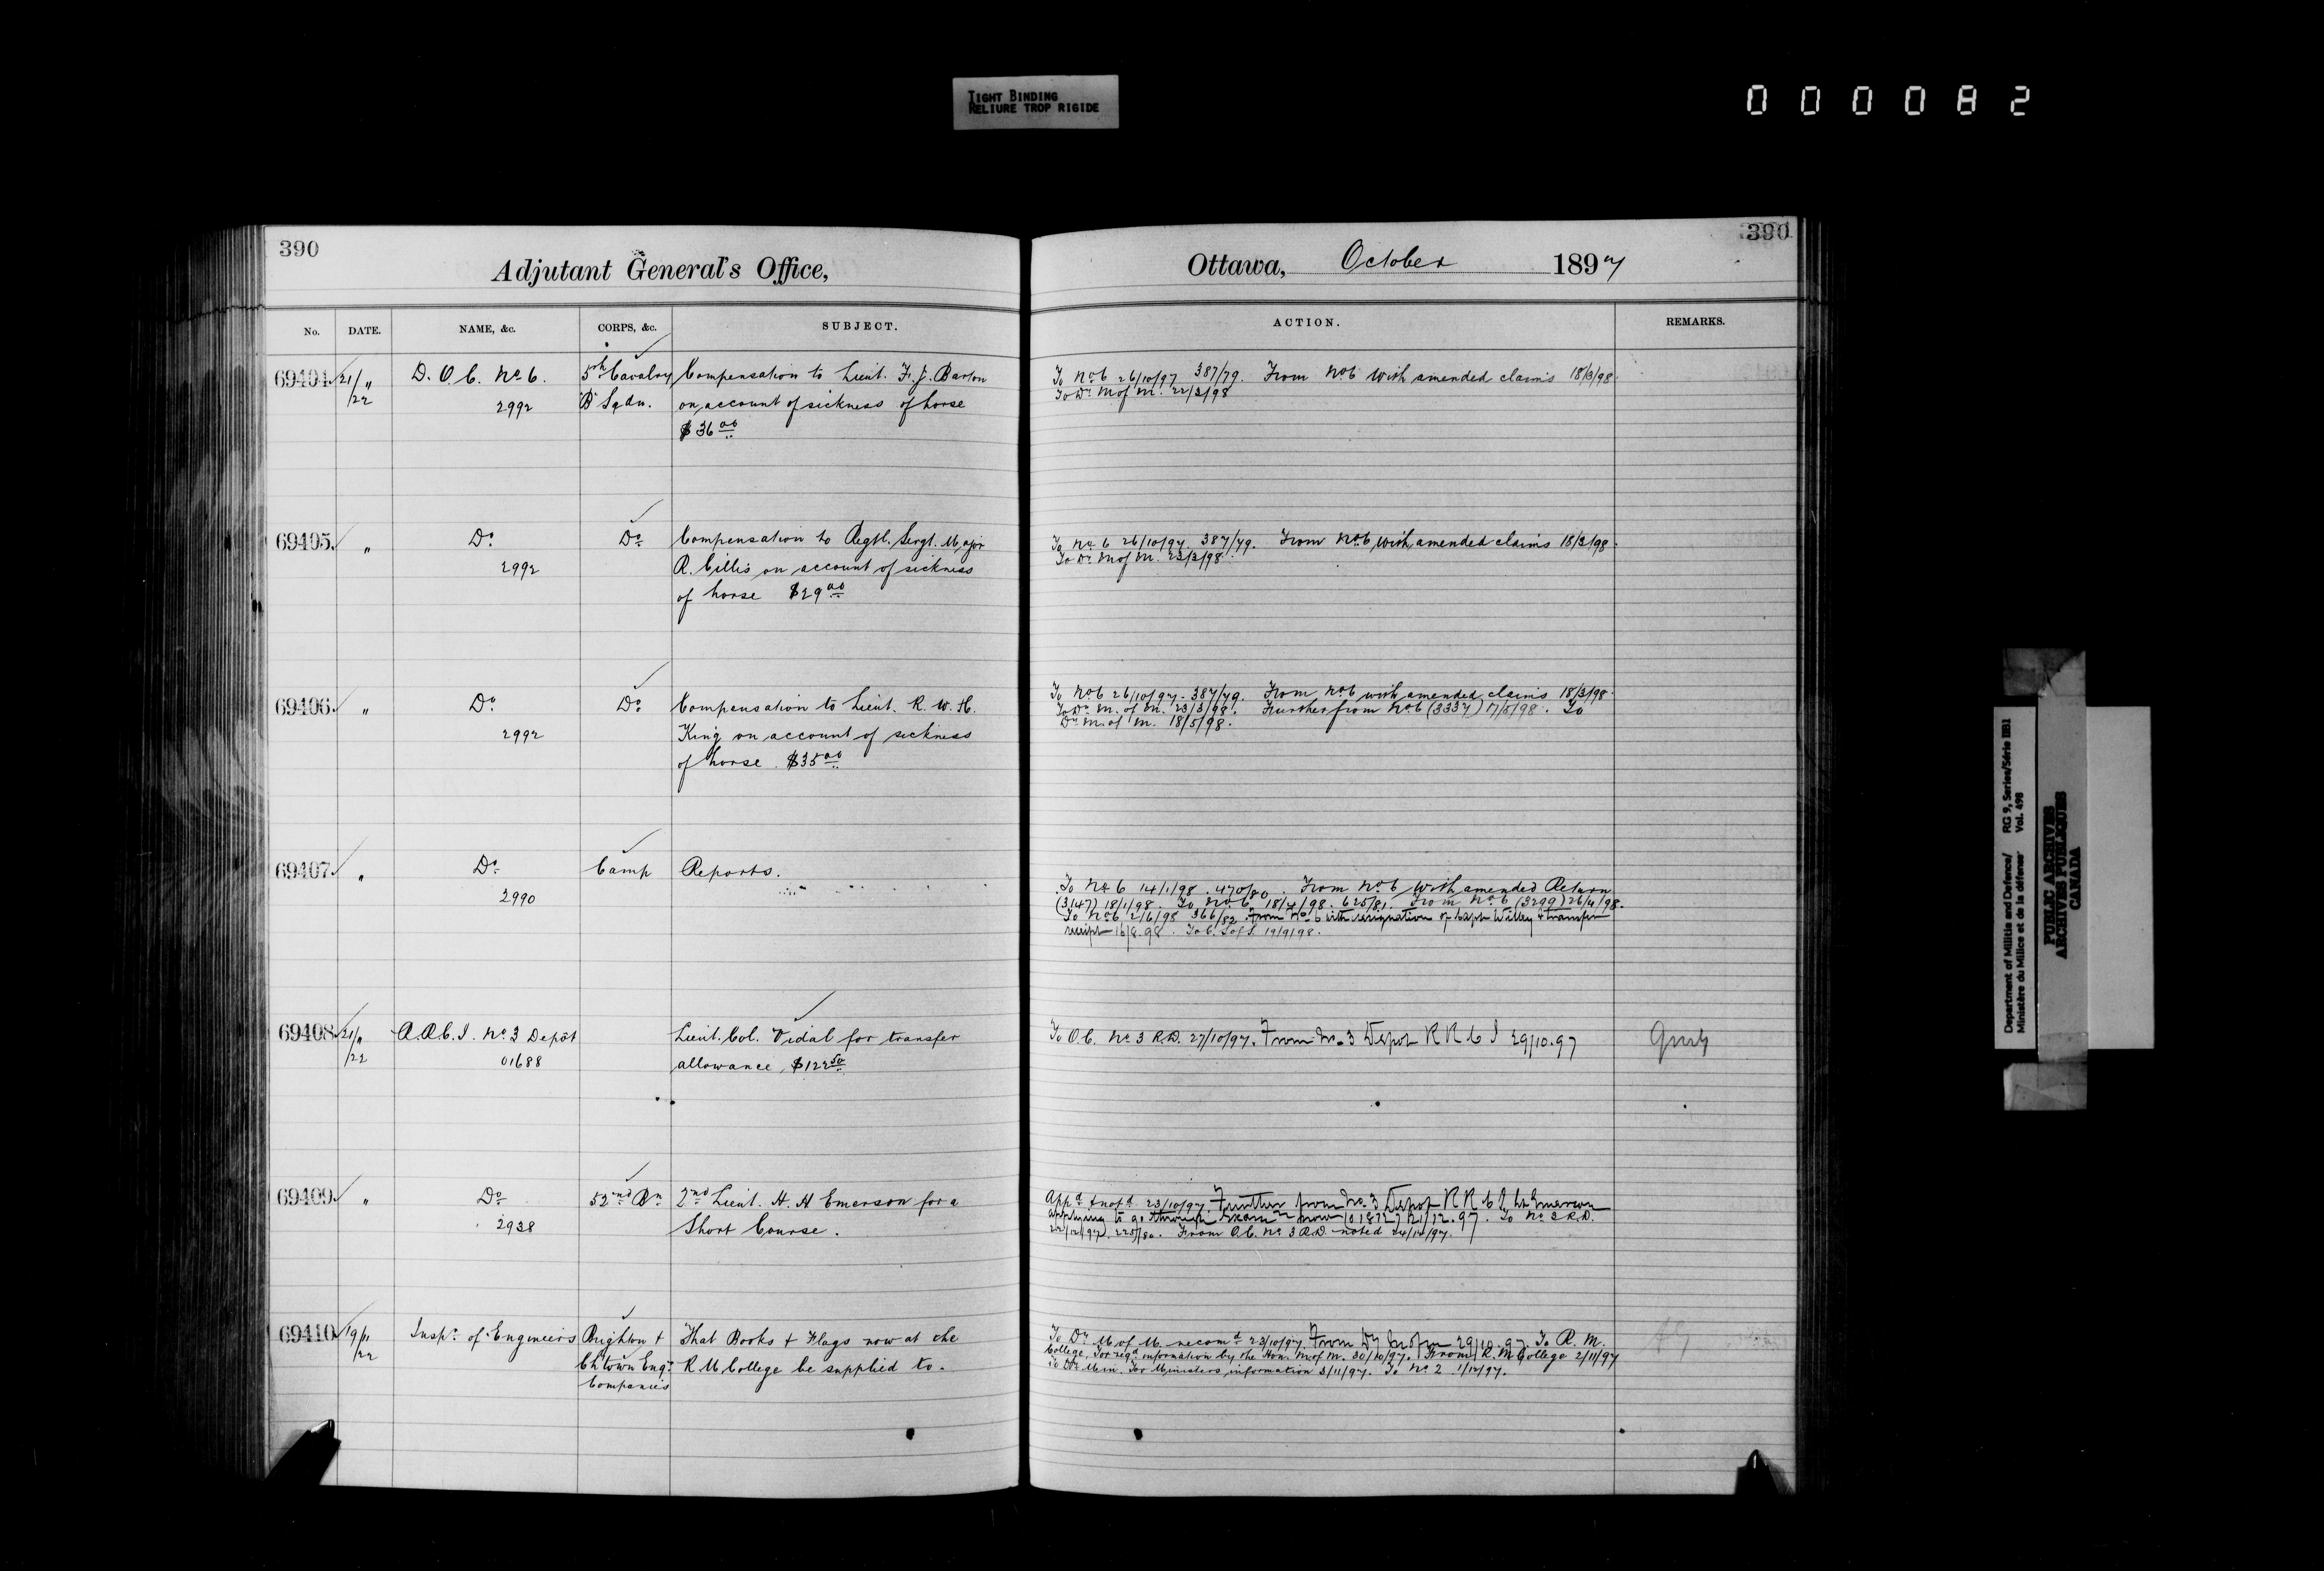 TIGHT BINDING
RELIURE TROP RIGIDE
000082
390
Adjutant General's Office,
No. DATE. NAME, &c. CORPS, &c. SUBJECT.
69404 21/" D. O. C. No 6. 5th Cavalry Compensation to Lieut. F. J. Barton
/22 2992 "B" Sqdn. on account of sickness of horse
$36 00
69405. " Do Do Compensation to Regtl. Sergt. Major
2992 R. Gillis on account of sickness
of horse $29 00
69406. " Do Do Compensation to Lieut. R. W. H.
2992 King on account of sickness
of horse. $35 00
69407 " Do Camp Reports.
2990
69408 21/" R.R.C.I. No 3 Depôt Lieut. Col. Vidal for transfer
/22 01688 allowance, $122 50
69409 " Do 52nd Bn 2nd Lieut. H. H Emerson for a
2938 Short Course.
69410 19/" Inspr of Engineers Brighton + That Books + Flags now at the
/22 Ch'town Engr R M College be supplied to.
Companies
390
Ottawa, October 1897
ACTION. REMARKS.
To No 6 26/10/97 387/79. From No 6 with amended claims 18/3/98.
To Dr M of M. 22/3/98
To No 6 26/10/97. 387/79. From No 6 with amended claims 18/3/98.
To Dr M of M. 23/3/98.
To No 6 26/10/97. 387/79. From No 6 with amended claims 18/3/98.
To Dr M. of M. 23/3/98. Further from No 6 (3337) 17/5/98. To
Dr M. of M. 18/5/98.
To No 6 14/1/98. 470/80. From No 6 with amended Return
(3147) 18/1/98. To No 6 18/4/98. 625/81. From No 6 (3299) 26/4/98.
To No 6 2/6/98 366/82. From No 6 with resignation of Capt Willey & transfer
receipt 16/8.98. To C. S of S. 19/9/98.
To O.C. No 3 R.D. 27/10/97. From No. 3 Depot R R C I 29/10.97
Appd & notd. 23/10/97. Further from No. 3 Depot R R C I Lt Emerson
applying to go through Exam now 21/12.97. To No 3 R.D.
22/12/97. 225/80. From O.C. No 3 R.D. noted 24/12/97.
To Dr M of M. recomd 23/10/97. From Dy M of M 29/10.97. To R. M.
College. For reqd information by the Hon. M of M. 30/10/97. From R. M College 2/11/97
To Dr Min. For Ministers information 3/11/97. To No 2 1/12/97.
Department of Militia and Defence/ RG 9, Series/Série IIB1
Ministère du Milice et de la défense Vol. 498
PUBLIC ARCHIVES
ARCHIVES PUBLIQUES
CANADA